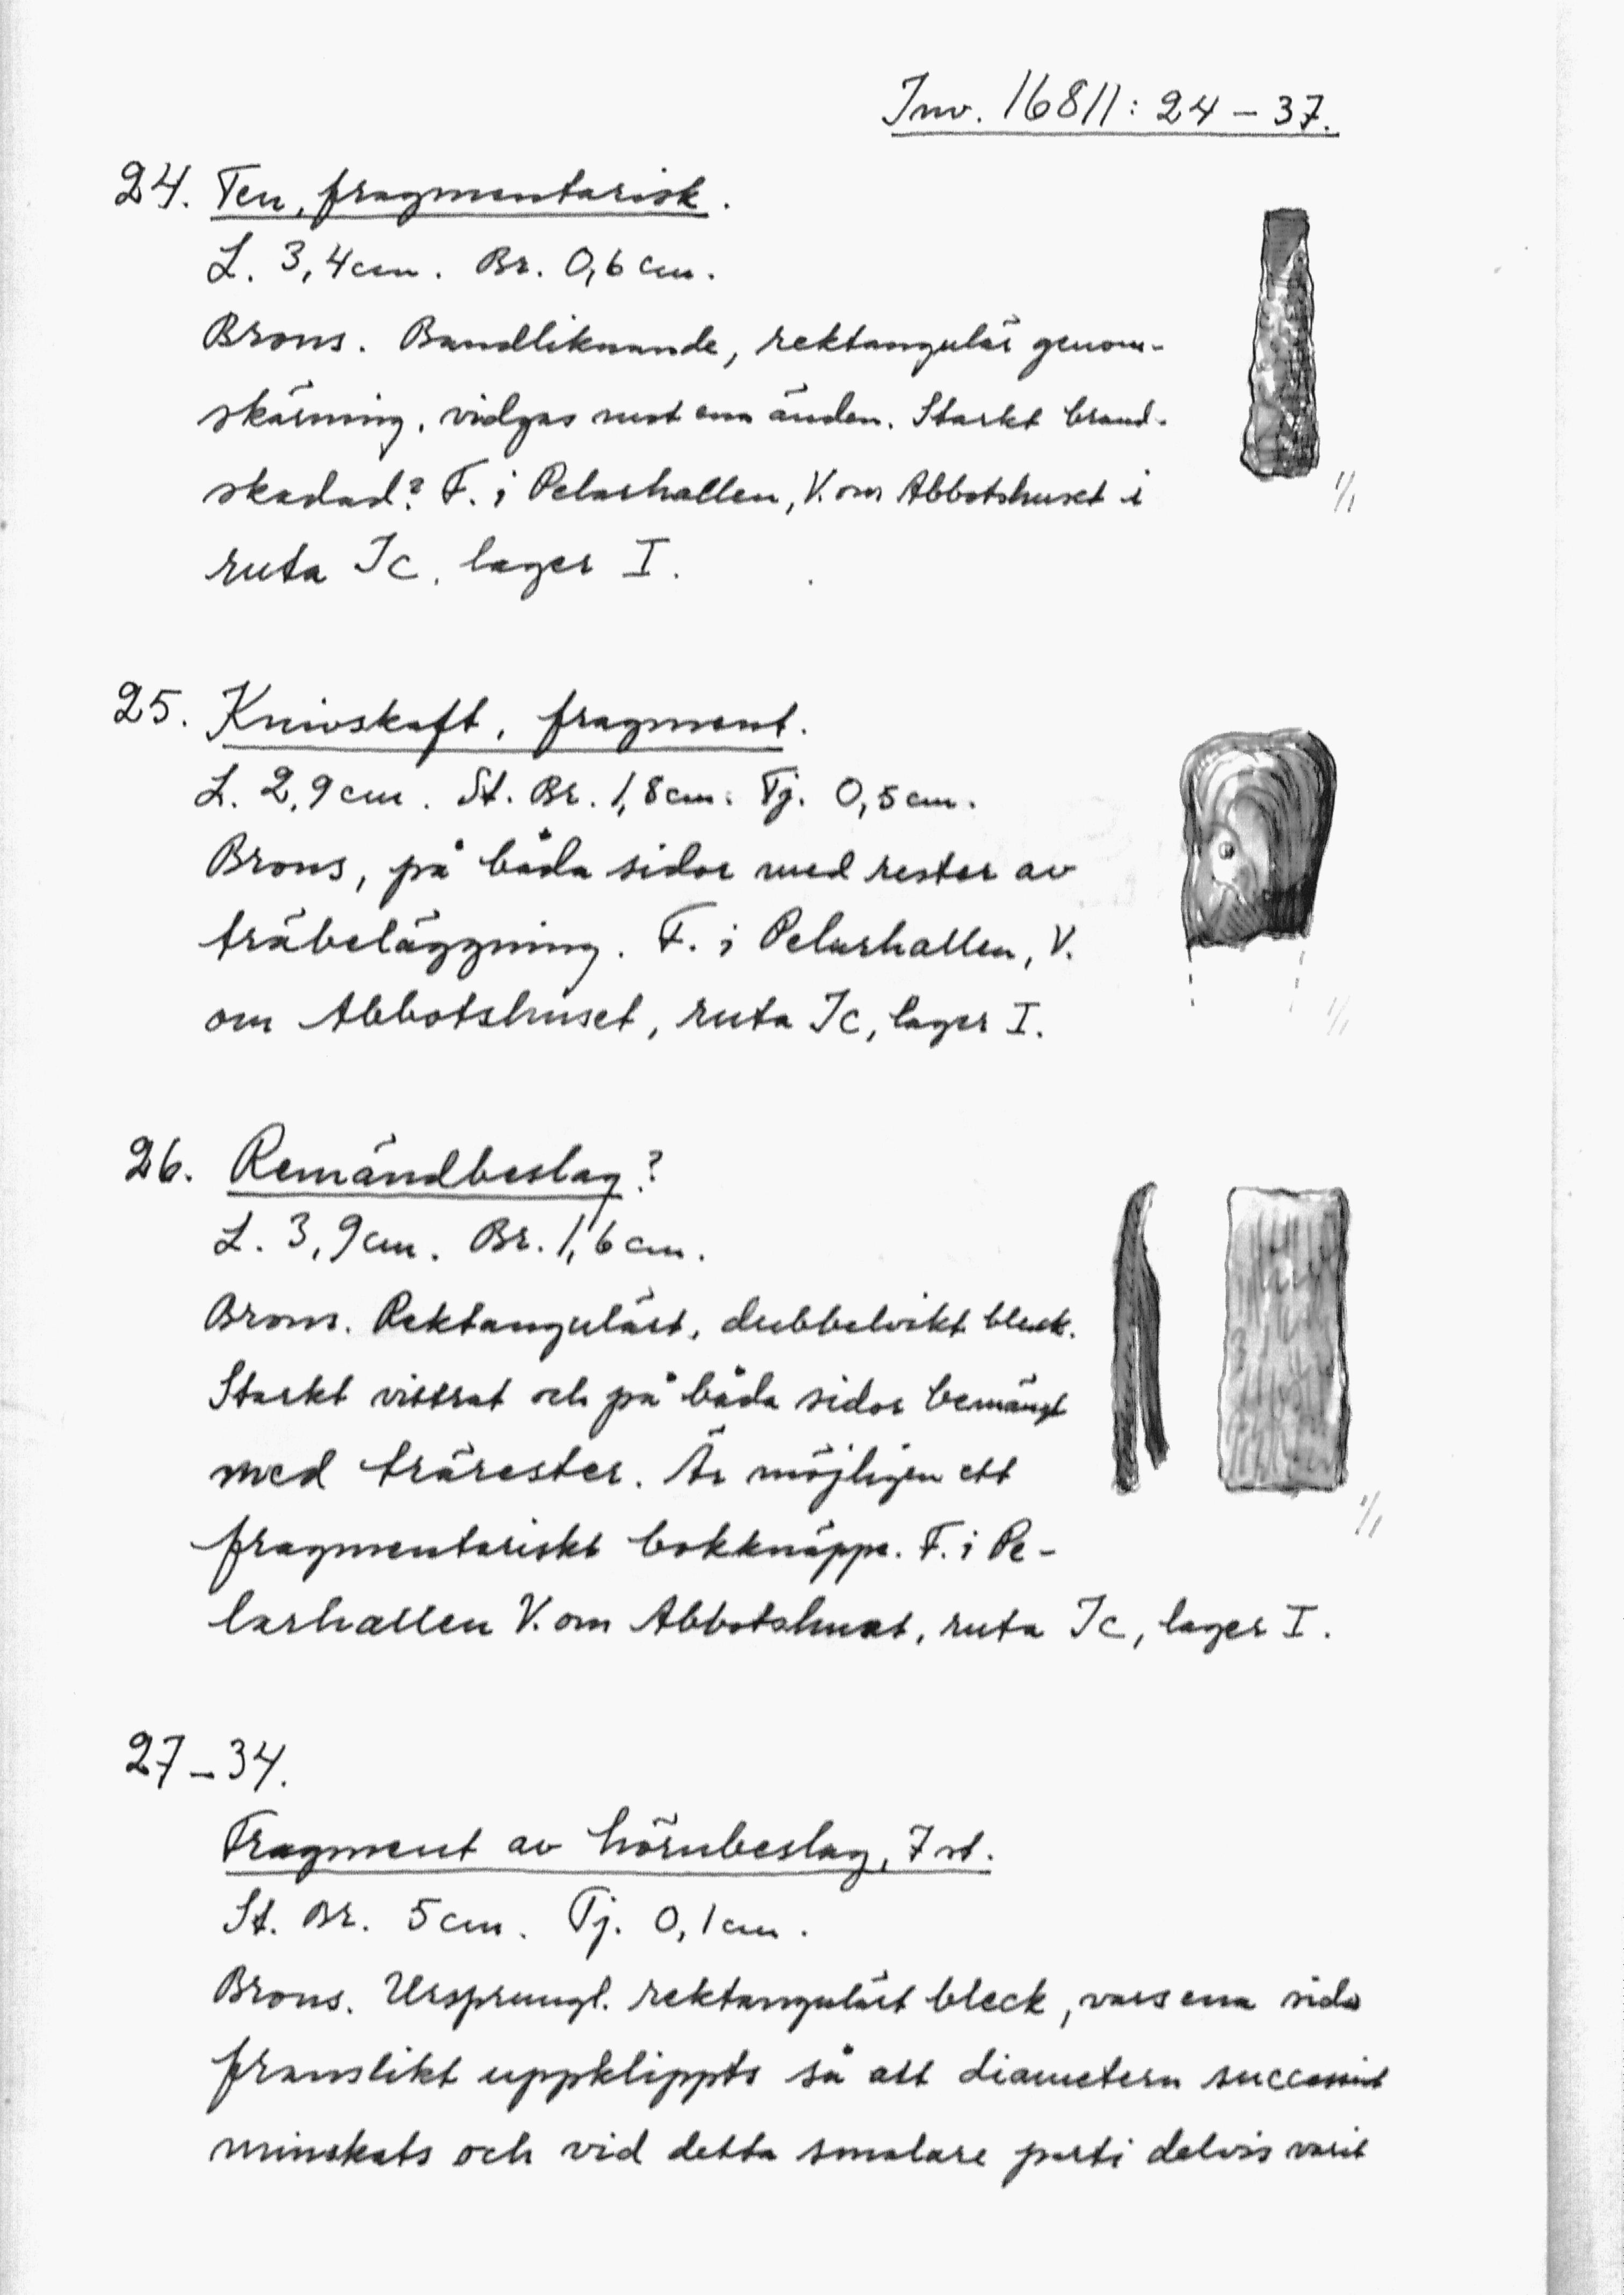 Inv. 16811: 24 – 37.
24. Ten, fragmentarisk.
L. 3,4 cm. Br. 0,6 cm.
Brons. Bandliknande, rektangulär genom-
skärning, vidgas mot ena änden. Starkt brand-
skadad? F. i Pelarhallen, V. om Abbotshuset i
ruta Ic, lager I.
1/1
25. Knivskaft, fragment.
L. 2,9 cm. St. Br. 1,8 cm. Tj. 0,5 cm.
Brons, på båda sidor med rester av
träbeläggning. F. i Pelarhallen, V.
om Abbotshuset, ruta Ic, lager I.
1/1
26. Remändbeslag?
L. 3,9 cm. Br. 1,6 cm.
Brons. Rektangulärt, dubbelvikt bleck.
Starkt vittrat och på båda sidor bemängt
med trärester. Är möjligen ett
fragmentariskt bokknäppe. F. i Pe-
larhallen V. om Abbotshuset, ruta Ic, lager I.
1/1
27 – 34.
Fragment av hörnbeslag, 7 st.
St. Br. 5 cm. Tj. 0,1 cm.
Brons. Ursprungl. rektangulärt bleck, vars ena sida
franslikt uppklippts så att diametern successivt
minskats och vid detta smalare parti delvis varit